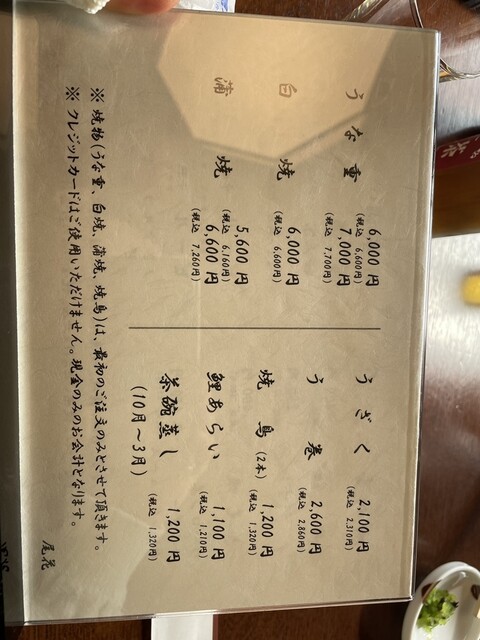 うな重 6,000円
(税込 6,600円)
7,000円
(税込 7,700円)
白焼 6,000円
(税込 6,600円)
蒲焼 5,600円
(税込 6,160円)
6,600円
(税込 7,260円)
うざく 2,100円
(税込 2,310円)
う巻 2,600円
(税込 2,860円)
焼鳥(2本) 1,200円
(税込 1,320円)
鯉あらい 1,100円
(税込 1,210円)
茶碗蒸し 1,200円
(10月~3月) (税込 1,320円)
※ 焼物(うな重、白焼、蒲焼、焼鳥)は、最初のご注文のみとさせて頂きます。
※ クレジットカードはご使用いただけません。現金のみのお会計となります。
尾花